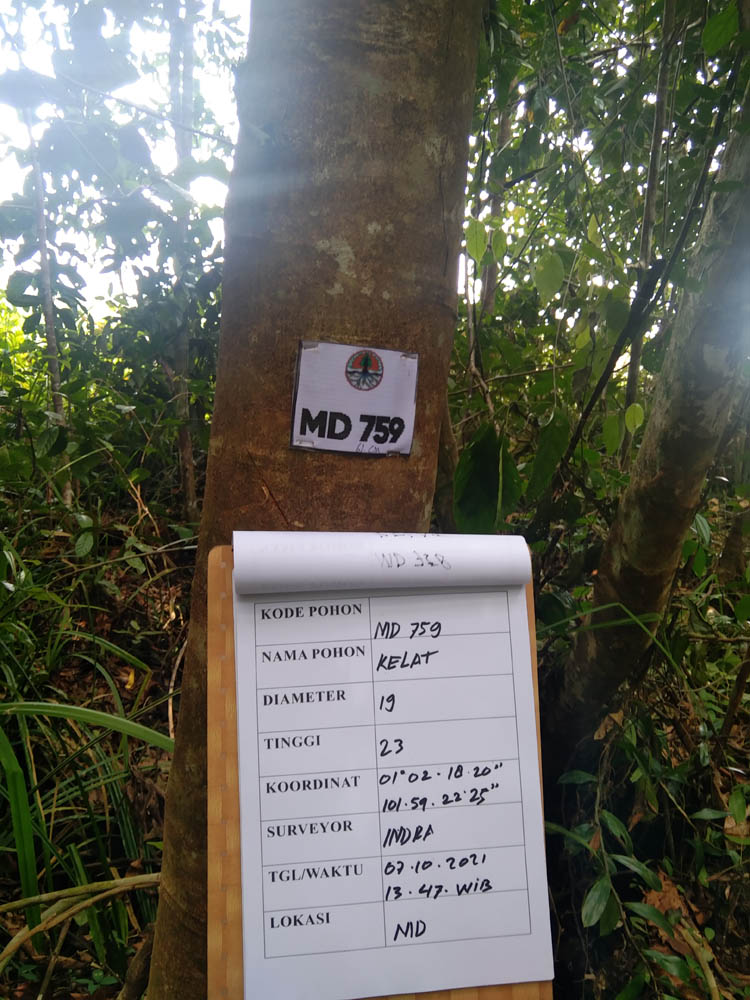 MD 759
KODE POHON MD 759
NAMA POHON KELAT
DIAMETER 19
TINGGI 23
KOORDINAT 01°02·18·20"
101·59·22·25"
SURVEYOR INDRA
TGL/WAKTU 07·10·2021
13·47·WIB
LOKASI MD